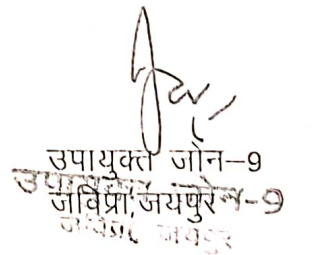 उपायुक्त जोन-9
जविप्रा, जयपुर
उपायुक्त जोन-9
जविप्रा, जयपुर